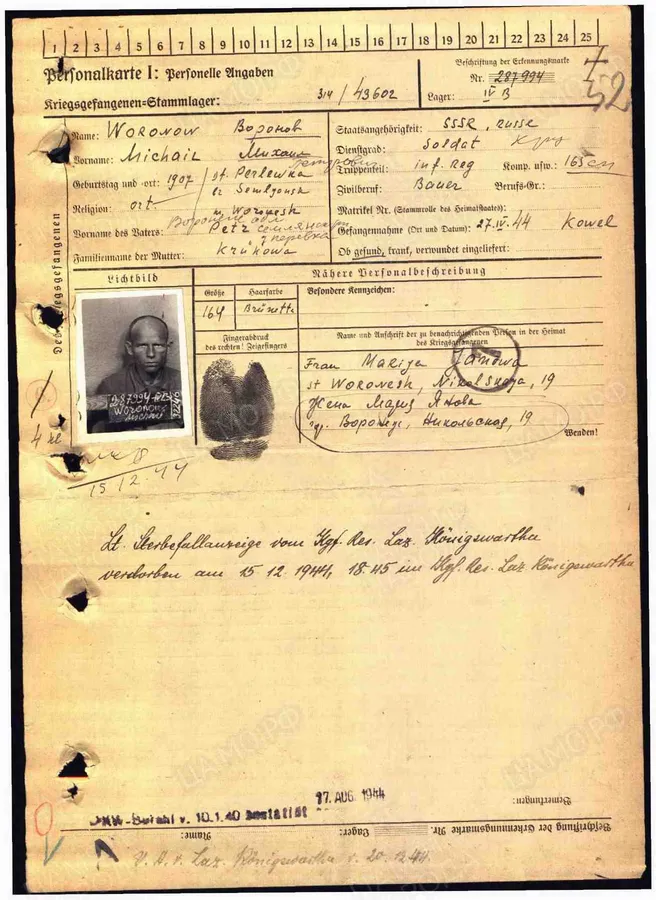 1 2 3 4 5 6 7 8 9 10 11 12 13 14 15 16 17 18 19 20 21 22 23 24 25
Personalkarte I: Personelle Angaben
Kriegsgefangenen-Stammlager: 314 / 43602
Beschriftung der Erkennungsmarke
Nr. 287994
Lager: IV B
52
Des Kriegsgefangenen
Name: WORONOW Воронов
Vorname: Michail Михаил Петрович
Geburtstag und -ort: 1907 st. Perlewka
Semljansk
Religion: ort. Woronesh
Воронеж обл
Vorname des Vaters: Petr семлянск
Перлевка
Familienname der Mutter: Krükowa
Staatsangehörigkeit: SSSR, russe
Dienstgrad: Soldat
Truppenteil: inf. Reg Komp. usw.: 163
Zivilberuf: Bauer Berufs-Gr.:
Matrikel Nr. (Stammrolle des Heimatstaates):
Gefangennahme (Ort und Datum): 27.IV.44 Kowel
Ob gesund, krank, verwundet eingeliefert:
Lichtbild
Nähere Personalbeschreibung
Größe Haarfarbe
164 Brünett
Besondere Kennzeichen:
Fingerabdruck
des rechten! Zeigefingers
Name und Anschrift der zu benachrichtigenden Person in der Heimat
des Kriegsgefangenen
Frau Marija Janowa
st Woronesh, Nikolskaja, 19
Жена Мария Янова
гор. Воронеж, Никольская, 19
Wenden!
287994
WORONOW
15.12.44
Lt. Sterbefallanzeige vom Kgf. Res. Laz. Königswartha
verstorben am 15.12.1944, 18.45 im Kgf. Res. Laz. Königswartha
17. AUG. 1944
OKW-Befehl v. 10.1.40 bestätigt
Bemerkungen:
Beschriftung der Erkennungsmarke Nr.
Lager:
Name:
V. A. v. Laz. Königswartha v. 20.12.44
ЦАМО.РФ